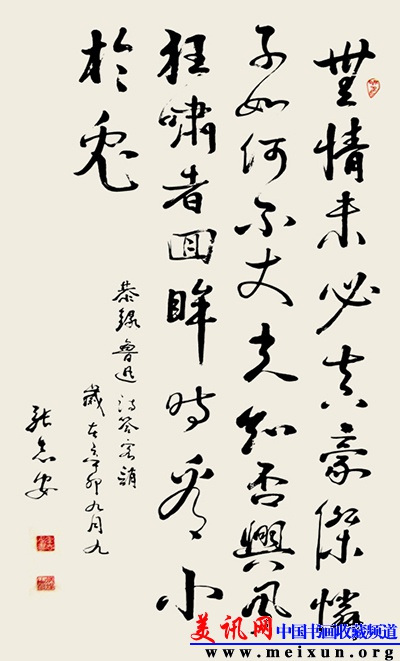 無情未必真豪傑憐
子如何不丈夫知否興風
狂嘯者回眸時看小
於兔
恭録魯迅詩答客誚
歲在辛卯九月九
美讯网 中国书画收藏频道
www.meixun.org